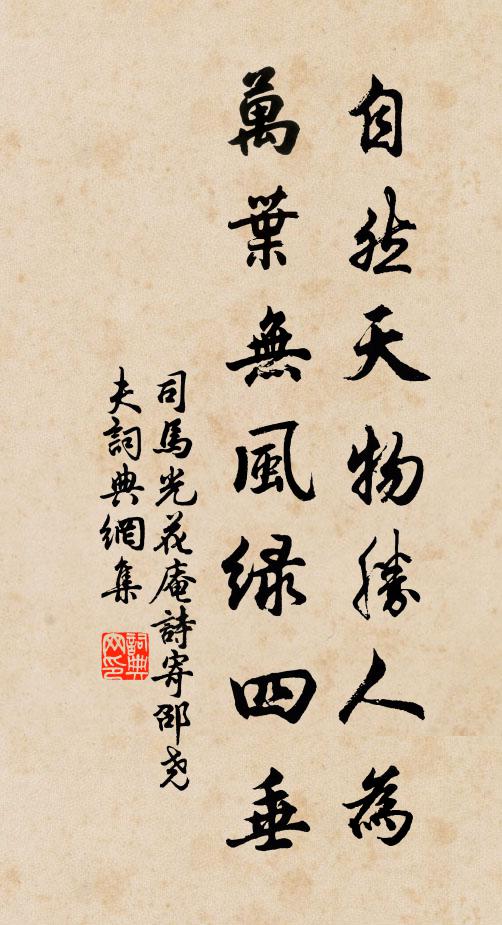 自然天物勝人為
萬葉無風綠四垂
司馬光花庵詩寄邵堯
夫詞典網集
詞典
网印